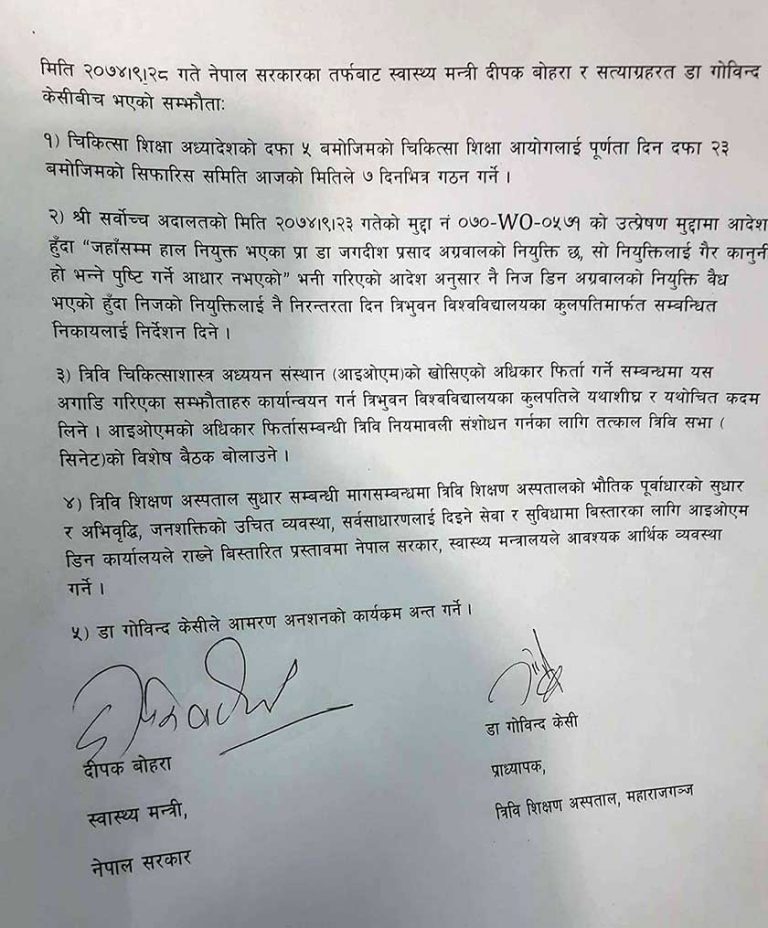 मिति २०७४।९।२८ गते नेपाल सरकारका तर्फबाट स्वास्थ्य मन्त्री दीपक बोहरा र सत्याग्रहरत डा गोविन्द
केसीबीच भएको सम्झौताः
१) चिकित्सा शिक्षा अध्यादेशको दफा ५ बमोजिमको चिकित्सा शिक्षा आयोगलाई पूर्णता दिन दफा २३
बमोजिमको सिफारिस समिति आजको मितिले ७ दिनभित्र गठन गर्ने ।
२) श्री सर्वोच्च अदालतको मिति २०७४।९।२३ गतेको मुद्दा नं ०७०-WO-०५७१ को उत्प्रेषण मुद्दामा आदेश
हुँदा “जहाँसम्म हाल नियुक्त भएका प्रा डा जगदीश प्रसाद अग्रवालको नियुक्ति छ, सो नियुक्तिलाई गैर कानुनी
हो भन्ने पुष्टि गर्ने आधार नभएको” भनी गरिएको आदेश अनुसार नै निज डिन अग्रवालको नियुक्ति वैध
भएको हुँदा निजको नियुक्तिलाई नै निरन्तरता दिन त्रिभुवन विश्वविद्यालयका कुलपतिमार्फत सम्वन्धित
निकायलाई निर्देशन दिने ।
३) त्रिवि चिकित्साशास्त्र अध्ययन संस्थान (आइओएम)को खोसिएको अधिकार फिर्ता गर्ने सम्बन्धमा यस
अगाडि गरिएका सम्झौताहरु कार्यान्वयन गर्न त्रिभुवन विश्वविद्यालयका कुलपतिले यथाशीघ्र र यथोचित कदम
लिने । आइओएमको अधिकार फिर्तासम्बन्धी त्रिवि नियमावली संशोधन गर्नका लागि तत्काल त्रिवि सभा (
सिनेट)को विशेष बैठक बोलाउने ।
४) त्रिवि शिक्षण अस्पताल सुधार सम्बन्धी मागसम्बन्धमा त्रिवि शिक्षण अस्पतालको भौतिक पूर्वाधारको सुधार
र अभिवृद्धि, जनशक्तिको उचित व्यवस्था, सर्वसाधारणलाई दिइने सेवा र सुविधामा बिस्तारका लागि आइओएम
डिन कार्यालयले राख्ने बिस्तारित प्रस्तावमा नेपाल सरकार, स्वास्थ्य मन्त्रालयले आवश्यक आर्थिक व्यवस्था
गर्ने ।
५) डा गोविन्द केसीले आमरण अनशनको कार्यक्रम अन्त गर्ने ।
दीपक बोहरा
स्वास्थ्य मन्त्री,
नेपाल सरकार
डा गोविन्द केसी
प्राध्यापक,
त्रिवि शिक्षण अस्पताल, महाराजगञ्ज